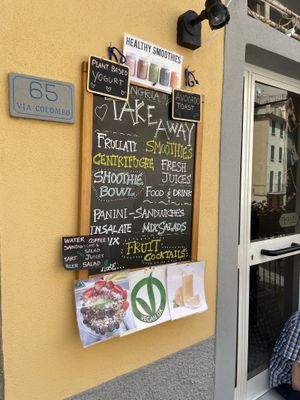 HEALTHY SMOOTHIES
PLANT BASED
YOGURT
AVOCADO
TOAST
65
VIA COLOMBO
TAKE
AWAY
FRULLATI SMOOTHIES
CENTRIFUGHE FRESH
JUICES
SMOOTHIE
BOWL FOOD & DRINK
PANINI-SANDWICHES
INSALATE MIX SALADS
FRUIT
COCKTAILS
WATER COFFEE
TART JUICES
BEER SALAD
VEGAN OK